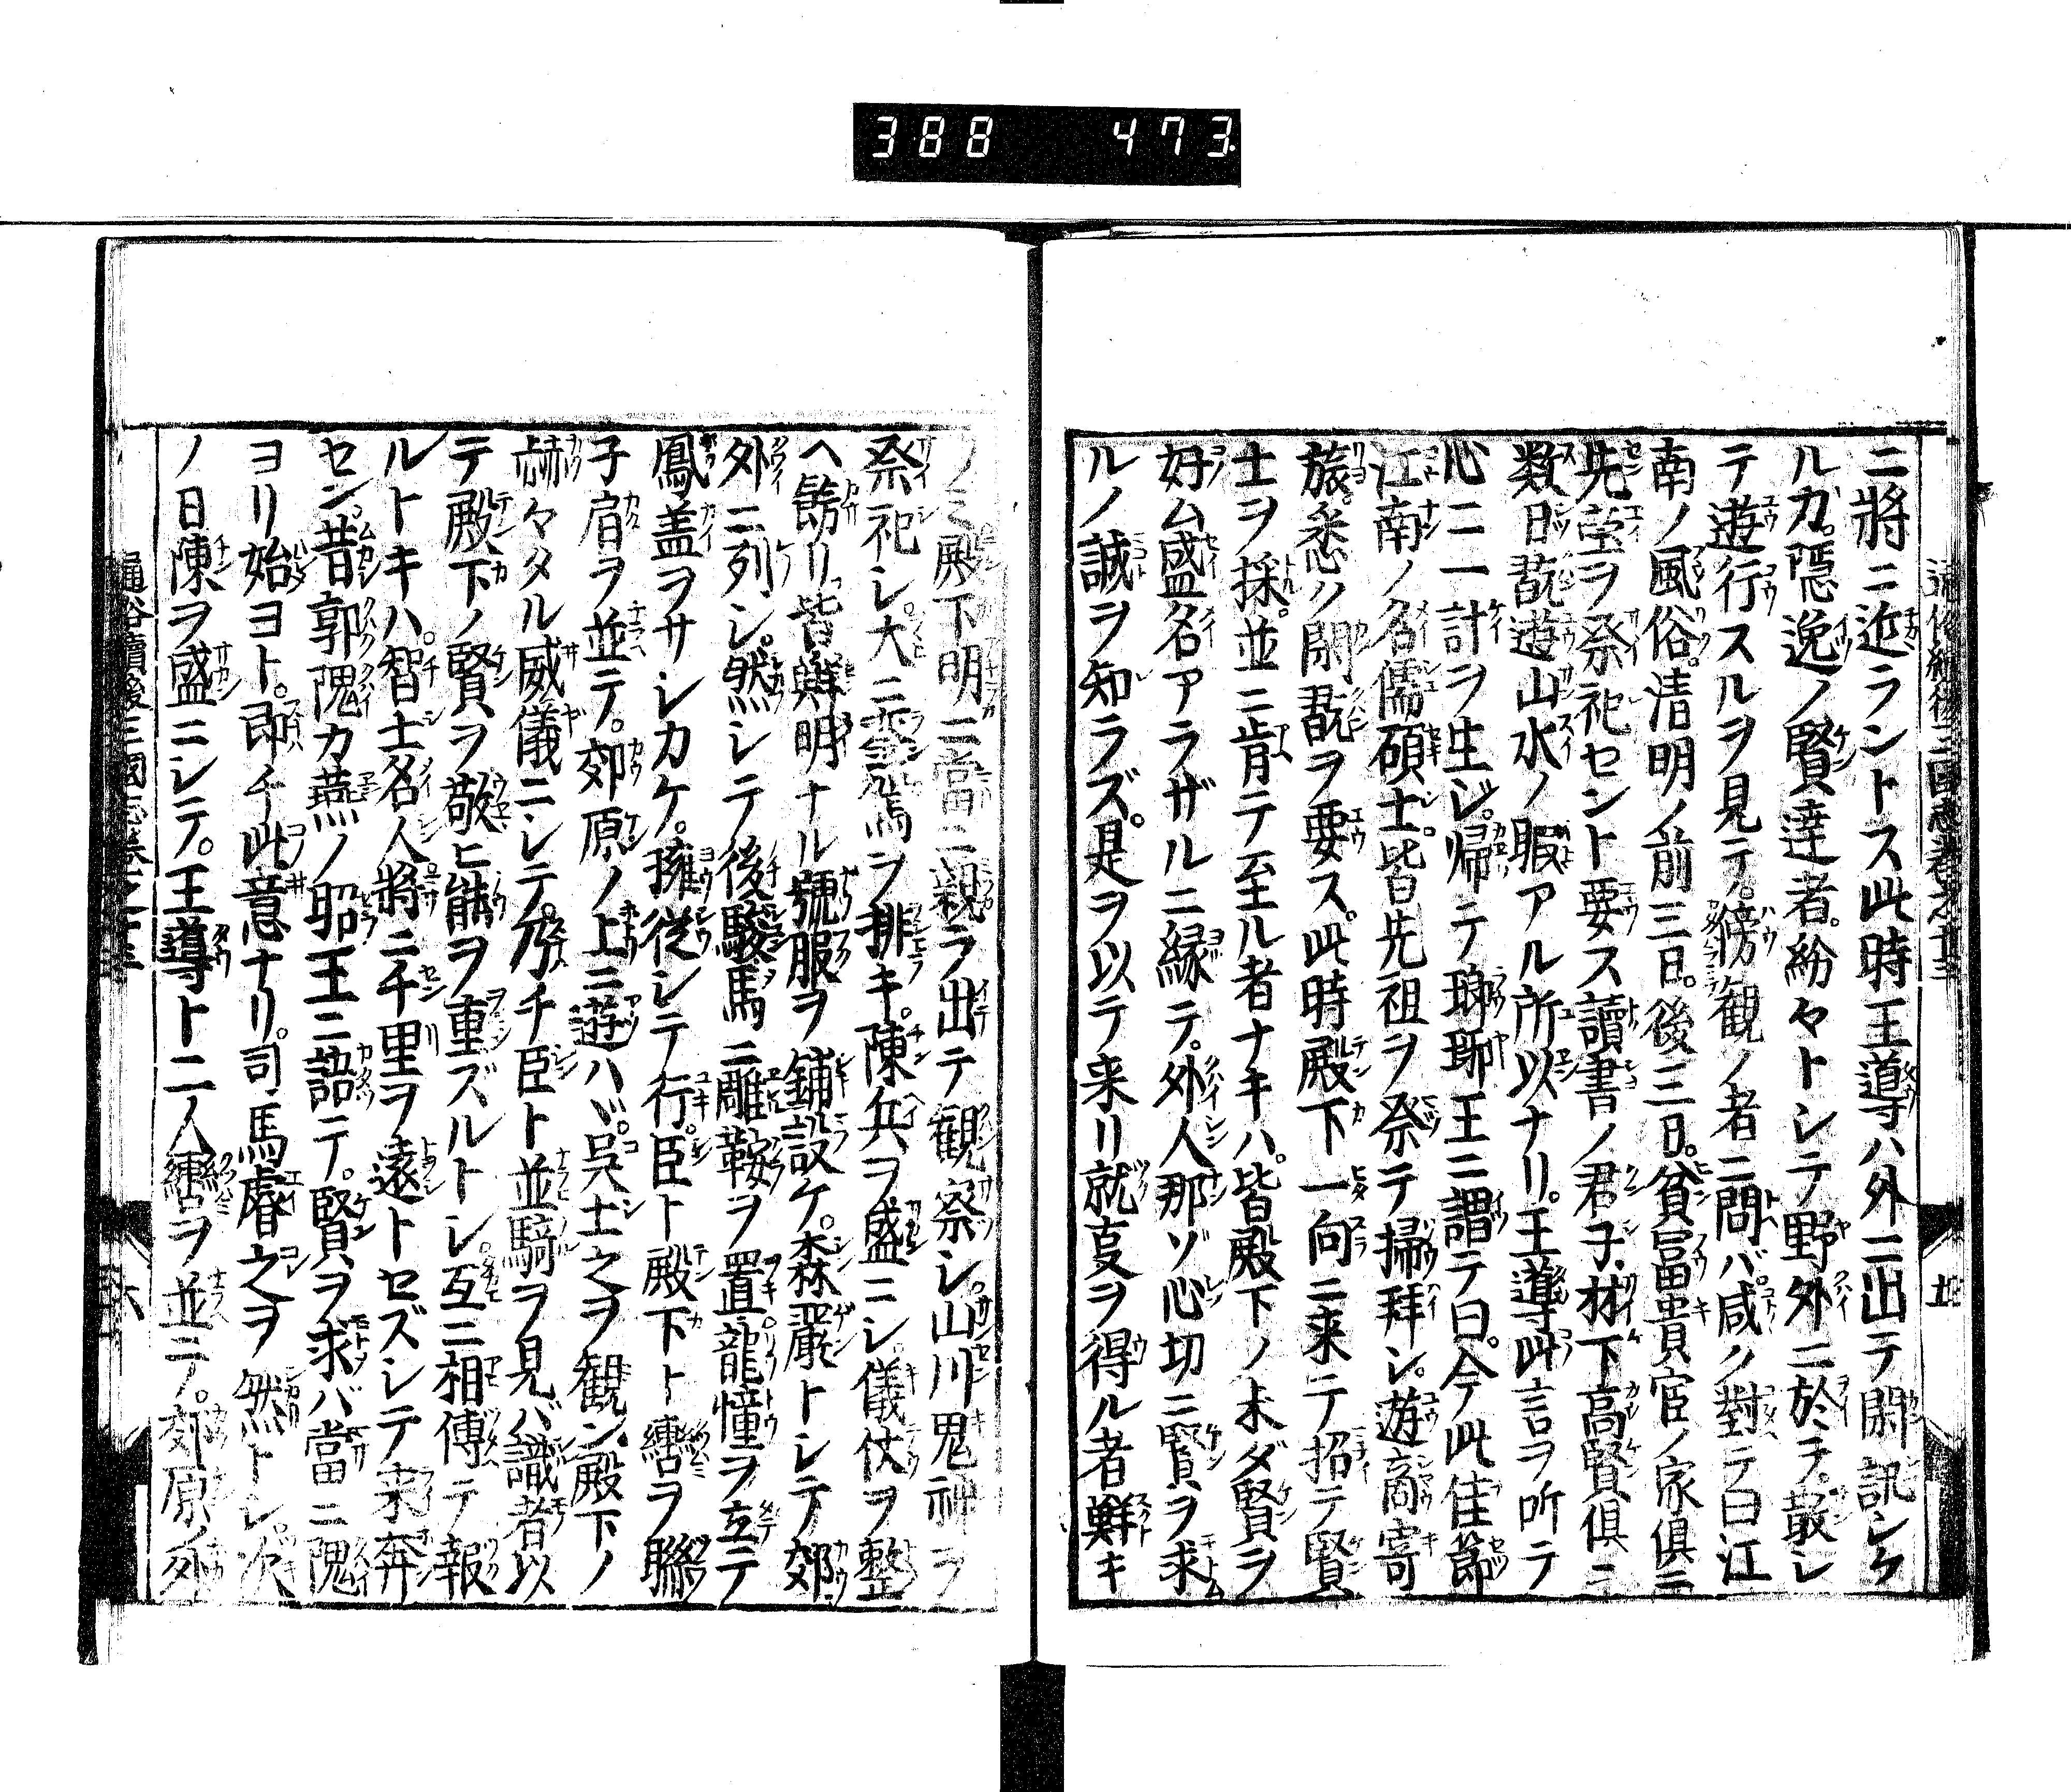 388 473
通俗續後三國志卷之十三 五
ニ將ニ近ラントス此時王導ハ外ニ出テ閑訊シケ
ルガ。隱逸ノ賢達者。紛々トシテ野外ニ於テ。散シ
テ遊行スルヲ見テ。傍觀ノ者ニ問バ。咸ク對テ曰江
南ノ風俗。清明ノ前三日。後三日。貧富貴宦ノ家俱ニ
先塋ヲ祭祀セント要ス讀書ノ君子。林下高賢俱ニ
數日翫遊山水ノ暇アル所以ナリ。王導此言ヲ听テ
心ニ一計ヲ生ジ。帰テ瑯琊王ニ謂テ曰。今此佳節
江南ノ名儒碩士。皆先祖ヲ祭テ掃拜シ。遊商寄
旅。悉ク閑翫ヲ要ス。此時殿下一向ニ来テ招テ賢
士ヲ採。並ニ肯テ至ル者ナキハ。皆殿下ノ未ダ賢ヲ
好ム盛名アラザルニ縁テ。外人那ゾ心切ニ賢ヲ求
ルノ誠ヲ知ラズ。是ヲ以テ来リ就支ヲ得ル者鮮キ
ノミ殿下明ニ當ニ親ラ出テ觀祭シ。山川鬼神ヲ
祭祀シ。大ニ鸞駕ヲ排キ。陳兵ヲ盛ニシ儀仗ヲ整
ヘ餝リ。皆鮮明ナル號服ヲ鋪設ケ。森嚴トシテ郊
外ニ列シ。然シテ後駿馬ニ雕鞍ヲ置。龍幢ヲ立テ
鳳盖ヲサシカケ。擁從シテ行。臣ト殿下ト轡ヲ聯
子肩ヲ並テ。郊原ノ上ニ遊ハバ。呉士之ヲ觀ン。殿下ノ
赫々タル威儀ニシテ。乃チ臣ト並騎ヲ見バ識者以
テ殿下ノ賢ヲ敬ヒ能ヲ重ズルトシ。互ニ相傳テ報
ルトキハ。智士名人將ニ千里ヲ遠トセズシテ来奔
セン。昔郭隗カ燕ノ昭王ニ語テ。賢ヲ求バ當ニ隗
ヨリ始ヨト。即チ此意ナリ。司馬睿之ヲ然トシ。次
ノ日陳ヲ盛ニシテ。王導ト二人轡ヲ並ニテ。郊原ノ外
通俗續後三國志卷之十三 六